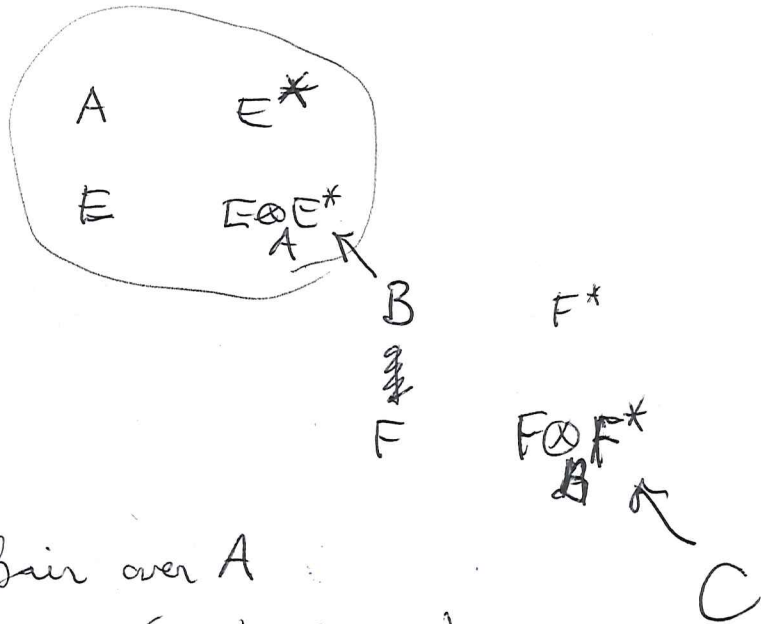 A E*
E E⊗E*
A
B F*
F F⊗F*
B
pair over A
C